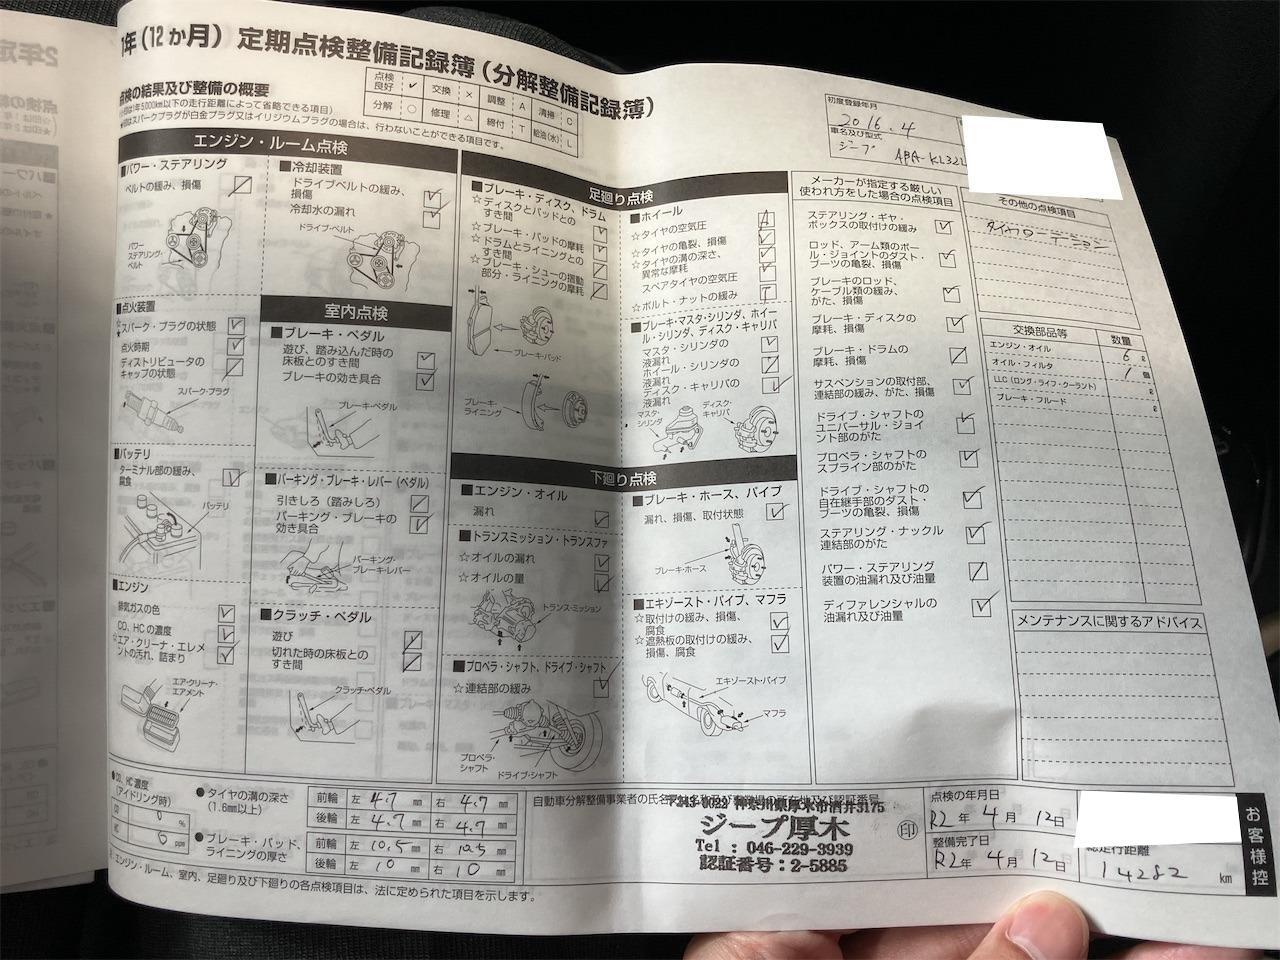 1年(12か月) 定期点検整備記録簿(分解整備記録簿)
点検の結果及び整備の概要
(☆印は1年5,000km以下の走行距離によって省略できる項目)
★印はスパークプラグが白金プラグ又はイリジウムプラグの場合は、行わないことができる項目です。
点検良好 ✓ 交換 × 調整 A 清掃 C
分解 ○ 修理 △ 締付 T 給油(水) L
初度登録年月
2016.4
車名及び型式
ジープ ABA-KL32L
エンジン・ルーム点検
■パワー・ステアリング
ベルトの緩み、損傷
パワー
ステアリング・
ベルト
■点火装置
スパーク・プラグの状態
点火時期
ディストリビュータの
キャップの状態
スパーク・プラグ
■バッテリ
ターミナル部の緩み、
腐食
バッテリ
■エンジン
排気ガスの色
CO、HCの濃度
☆エア・クリーナ・エレメ
ントの汚れ、詰まり
エア・クリーナ・
エアメント
■冷却装置
ドライブベルトの緩み、
損傷
冷却水の漏れ
ドライブ・ベルト
室内点検
■ブレーキ・ペダル
遊び、踏み込んだ時の
床板とのすき間
ブレーキの効き具合
ブレーキ・ペダル
■パーキング・ブレーキ・レバー(ペダル)
引きしろ(踏みしろ)
パーキング・ブレーキの
効き具合
パーキング・
ブレーキ・レバー
■クラッチ・ペダル
遊び
切れた時の床板との
すき間
クラッチ・ペダル
足廻り点検
■ブレーキ・ディスク、ドラム
☆ディスクとパッドとの
すき間
☆ブレーキ・パッドの摩耗
☆ドラムとライニングとの
すき間
☆ブレーキ・シューの摺動
部分・ライニングの摩耗
ブレーキ・パッド
ブレーキ・
ライニング
■ホイール
☆タイヤの空気圧 A
☆タイヤの亀裂、損傷
☆タイヤの溝の深さ、
異常な摩耗
スペアタイヤの空気圧
☆ボルト・ナットの緩み T
■ブレーキ・マスタ・シリンダ、ホイー
ル・シリンダ、ディスク・キャリパ
マスタ・シリンダの
液漏れ
ホイール・シリンダの
液漏れ
ディスク・キャリパの
液漏れ
マスタ・
シリンダ
ディスク・
キャリパ
下廻り点検
■エンジン・オイル
漏れ
■トランスミッション・トランスファ
☆オイルの漏れ
☆オイルの量
トランス・ミッション
■プロペラ・シャフト、ドライブ・シャフト
☆連結部の緩み
プロペラ・
シャフト
ドライブ・シャフト
■ブレーキ・ホース、パイプ
漏れ、損傷、取付状態
ブレーキ・ホース
■エキゾースト・パイプ、マフラ
☆取付けの緩み、損傷、
腐食
☆遮熱板の取付けの緩み、
損傷、腐食
エキゾースト・パイプ
マフラ
メーカーが指定する厳しい
使われ方をした場合の点検項目
ステアリング・ギヤ・
ボックスの取付けの緩み
ロッド、アーム類のボー
ル・ジョイントのダスト・
ブーツの亀裂、損傷
ブレーキのロッド、
ケーブル類の緩み、
がた、損傷
ブレーキ・ディスクの
摩耗、損傷
ブレーキ・ドラムの
摩耗、損傷
サスペンションの取付部、
連結部の緩み、がた、損傷
ドライブ・シャフトの
ユニバーサル・ジョイ
ント部のがた
プロペラ・シャフトの
スプライン部のがた
ドライブ・シャフトの
自在継手部のダスト・
ブーツの亀裂、損傷
ステアリング・ナックル
連結部のがた
パワー・ステアリング
装置の油漏れ及び油量
ディファレンシャルの
油漏れ及び油量
その他の点検項目
タイヤローテーション
交換部品等 数量
エンジン・オイル 6 ℓ
オイル・フィルタ 1 個
LLC(ロング・ライフ・クーラント) ℓ
ブレーキ・フルード ℓ
メンテナンスに関するアドバイス
●CO、HC濃度
(アイドリング時)
CO 0 %
HC 6 ppm
●タイヤの溝の深さ
(1.6mm以上)
前輪 左 4.7 mm 右 4.7 mm
後輪 左 4.7 mm 右 4.7 mm
●ブレーキ・パッド、
ライニングの厚さ
前輪 左 10.5 mm 右 10.5 mm
後輪 左 10 mm 右 10 mm
エンジン・ルーム、室内、足廻り及び下廻りの各点検項目は、法に定められた項目を示します。
自動車分解整備事業者の氏名又は名称及び事業場の所在地及び認証番号
〒243-0022 神奈川県厚木市酒井3175
ジープ厚木
Tel : 046-229-3939
認証番号：2-5885
印
点検の年月日
R2年 4月 12日
整備完了日
R2年 4月 12日
総走行距離
14282 km
お客様控